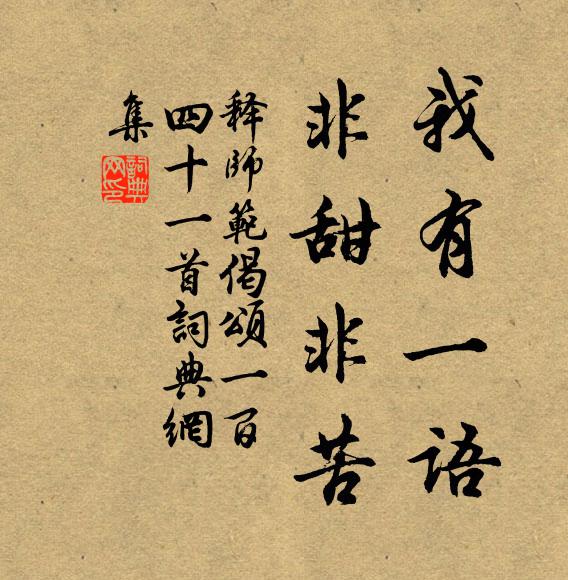 我有一语
非甜非苦
释師範偈頌一百
四十一首詞典網
集
詞典網印